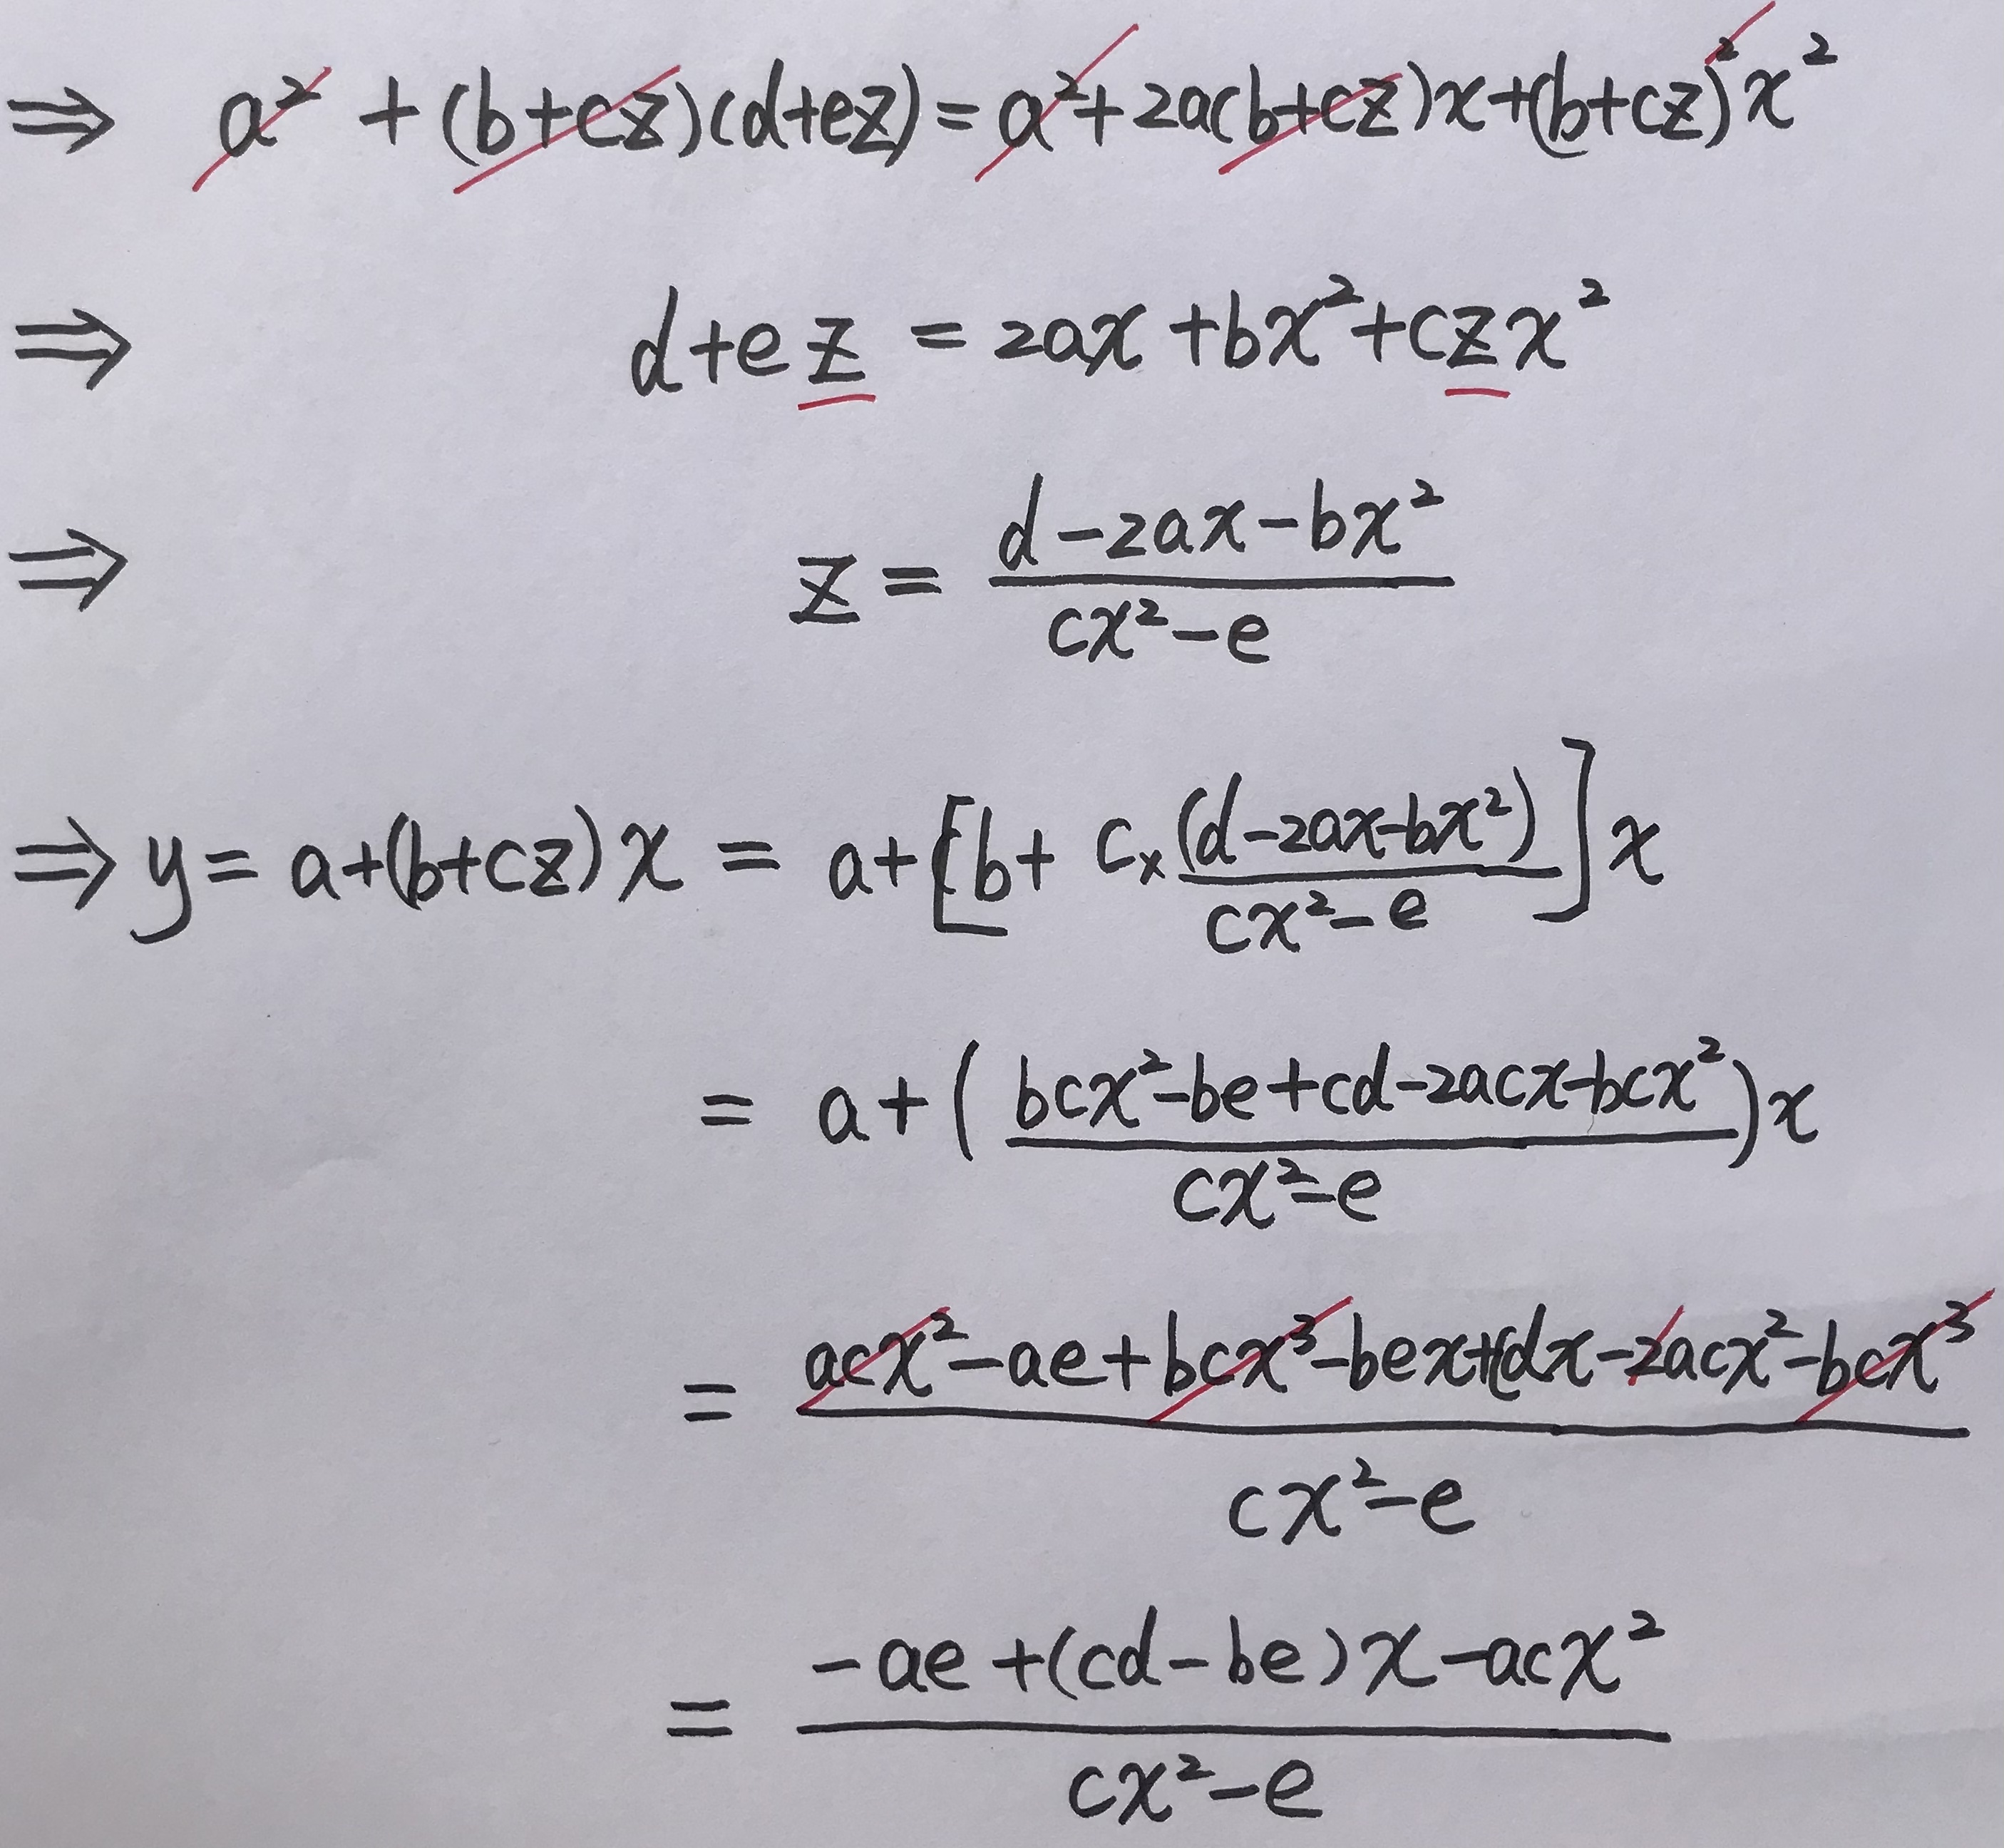 ⇒ a² + (b+cz)(d+ez) = a² + 2a(b+cz)x + (b+cz)²x²
⇒ d+ez = 2ax + bx² + czx²
⇒ z = (d-2ax-bx²)/(cx²-e)
⇒ y = a+(b+cz)x = a+[b+ c×(d-2ax-bx²)/(cx²-e)]x
= a+( (bcx²-be+cd-2acx-bcx²)/(cx²-e) )x
= (acx²-ae+bcx³-bex+cdx-2acx²-bcx³)/(cx²-e)
= (-ae+(cd-be)x-acx²)/(cx²-e)